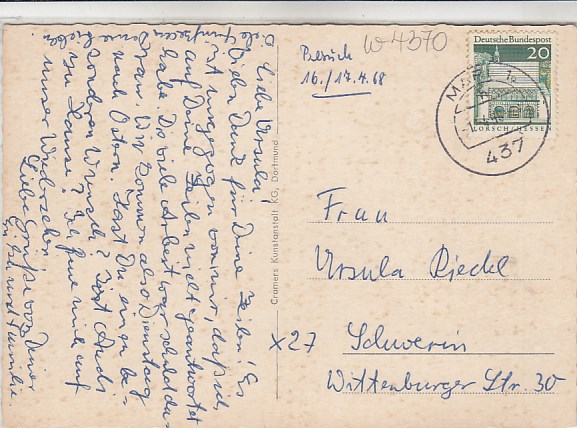 Liebe Ursula!
Vielen Dank für Deine Zeilen! Es
ist ungezogen von mir, daß ich
auf Deine Zeilen nicht geantwortet
habe. Die viele Arbeit war schuld da-
ran. Wir kommen also Dienstag
nach Ostern. Hast Du einen be-
sonderen Wunsch? Seid
zu Hause? Ich freue mich auf
unser Wiedersehen.
Liebe Grüße von Deiner
und Familie
Viele
Cramers Kunstanstalt KG, Dortmund
W 4370
Besuch
16./17.4.68
Deutsche Bundespost
20
LORSCH/HESSEN
MARL
437
Frau
Ursula Riedel
x 27
Schwerin
Wittenburger Str. 30